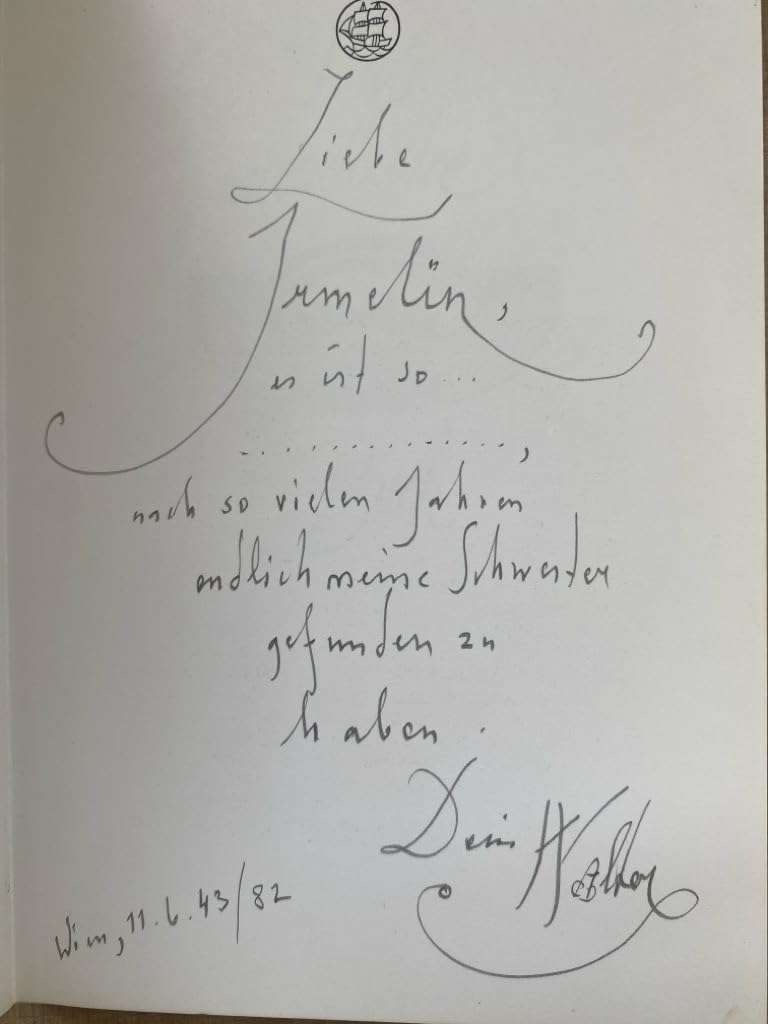 Liebe
Irmelin,
es ist so ...
..............,
nach so vielen Jahren
endlich meine Schwester
gefunden zu
haben.
Dein
Wien, 11.6.43/82